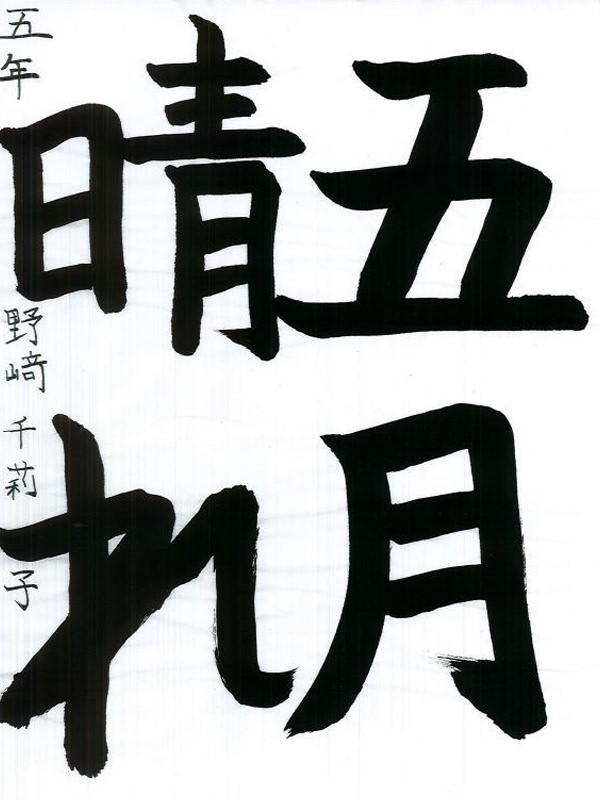 五月
晴れ
五年 野﨑 千莉子